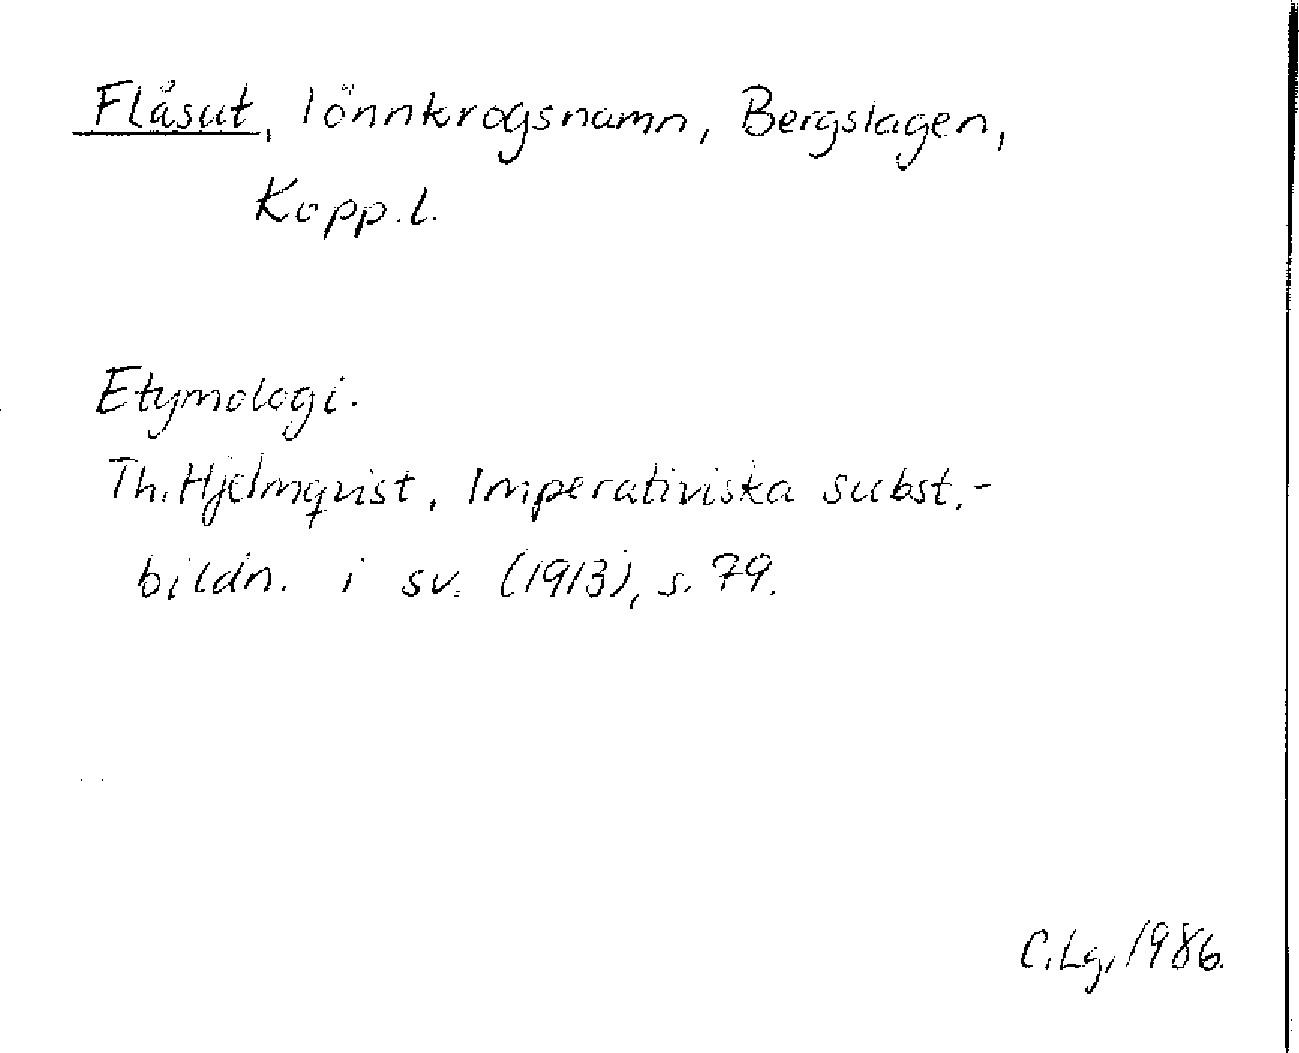 Flåsut, lönnkrogsnamn, Bergslagen,
Kopp.l.
Etymologi.
Th. Hjelmqvist, Imperativiska subst.-
bildn. i sv. (1913), s. 79.
C. Lg, 1986.